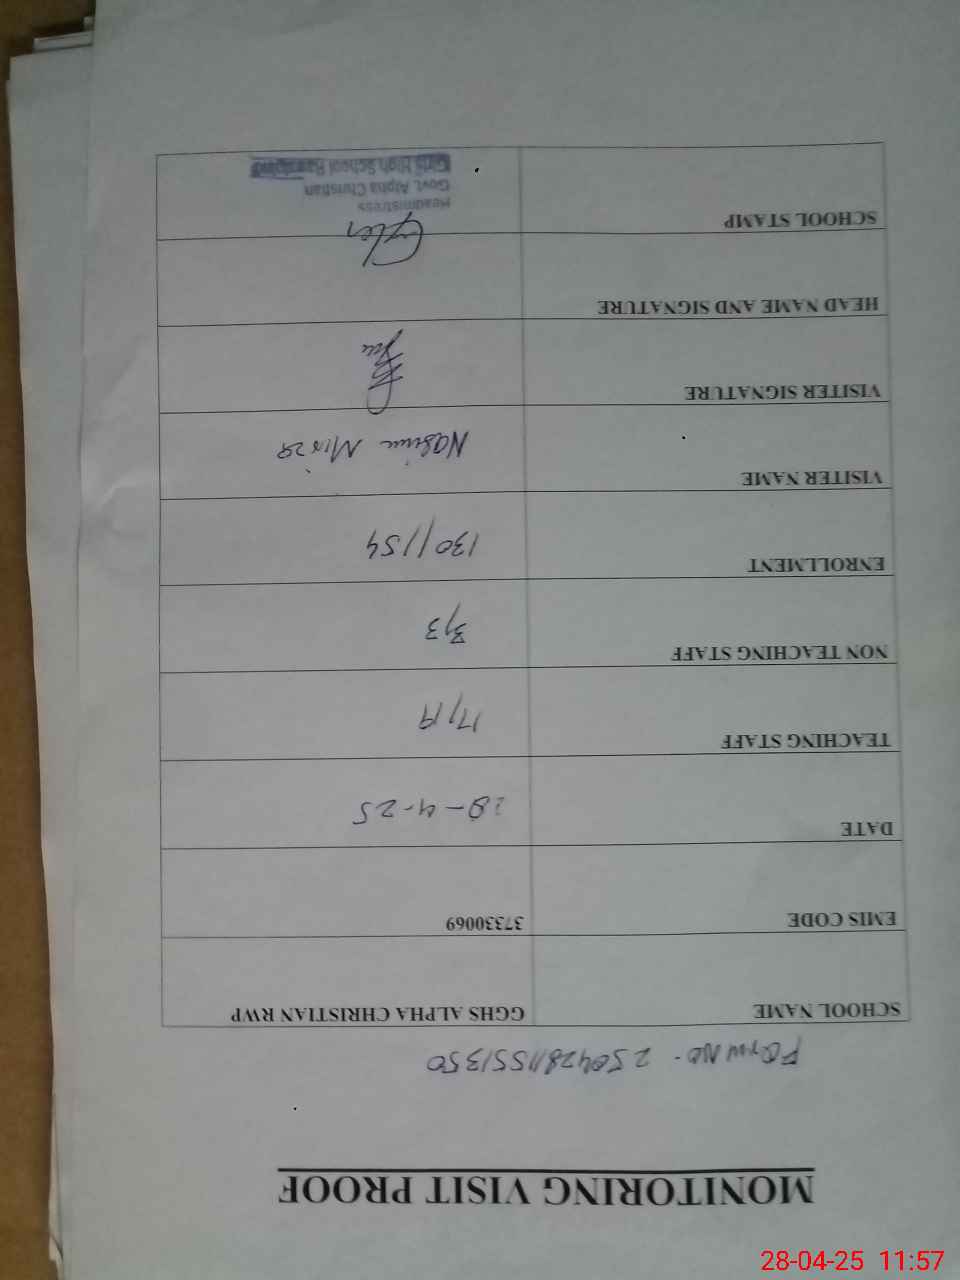 MONITORING VISIT PROOF
Form No- 25042811551350
SCHOOL NAME GGHS ALPHA CHRISTIAN RWP
EMIS CODE 37330069
DATE 28-4-25
TEACHING STAFF 17,19
NON TEACHING STAFF 3,3
ENROLLMENT 130//54
VISITER NAME
VISITER SIGNATURE
HEAD NAME AND SIGNATURE
SCHOOL STAMP
Headmistress
Govt. Alpha Christian
Girls High School Rawalpindi
28-04-25 11:57